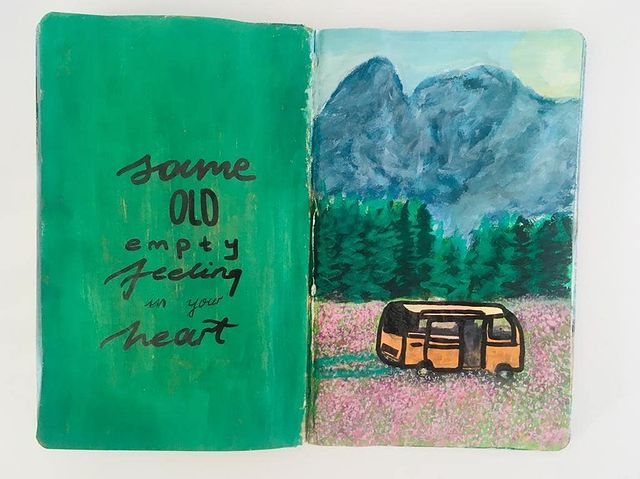 same
OLD
empty
feeling
in your
heart